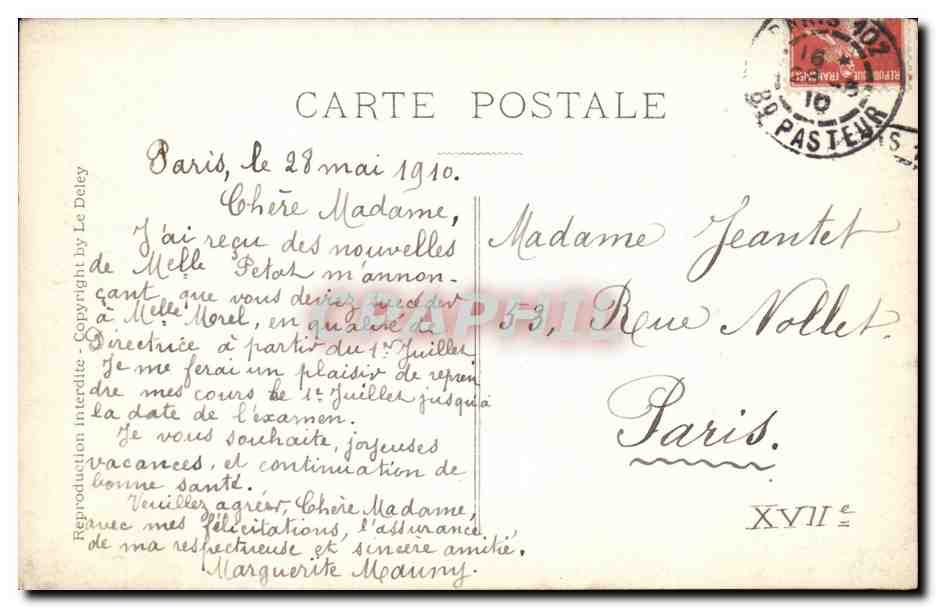 CARTE POSTALE
PARIS 102
16 *
10
Bd PASTEUR
RÉPUBLIQUE FRANÇAISE
Reproduction interdite - Copyright by Le Deley
Paris, le 28 mai 1910.
Chère Madame,
J'ai reçu des nouvelles
de Melle Petot m'annon-
çant que vous devrez succéder
à Melle Morel, en qualité de
Directrice à partir du 1er Juillet
Je me ferai un plaisir de repren
dre mes cours le 1er Juillet jusqu'à
la date de l'examen.
Je vous souhaite, joyeuses
vacances, et continuation de
bonne santé.
Veuillez agréer, Chère Madame,
avec mes félicitations, l'assurance
de ma respectueuse et sincère amitié.
Marguerite Mauny.
Madame Jeantet
53, Rue Nollet.
Paris.
XVIIe
CEAPHILA